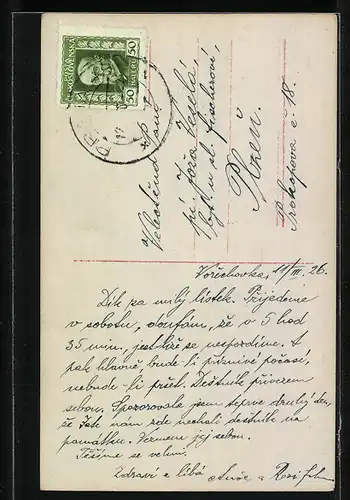 ČESKOSLOVENSKÁ
50 50
Velectěná Paní
pí. Joža Veselá,
byt. u sl. Fischerové,
Plzeň.
Prokopova č 18.
Vořechovka, 11/III. 26.
Dík za milý lístek. Přijedeme
v sobotu, doufám, že v 5 hod
35 min, jestliže se
pak hlavně bude-li příznivé počasí,
nebude-li pršet. Deštník přivezem
sebou. Spozorovala jsem teprve druhý den,
že Jste nám zde nechali deštník na
památku. Vezmem jej sebou.
Těšíme se velmi.
Zdraví a líbá Anče a